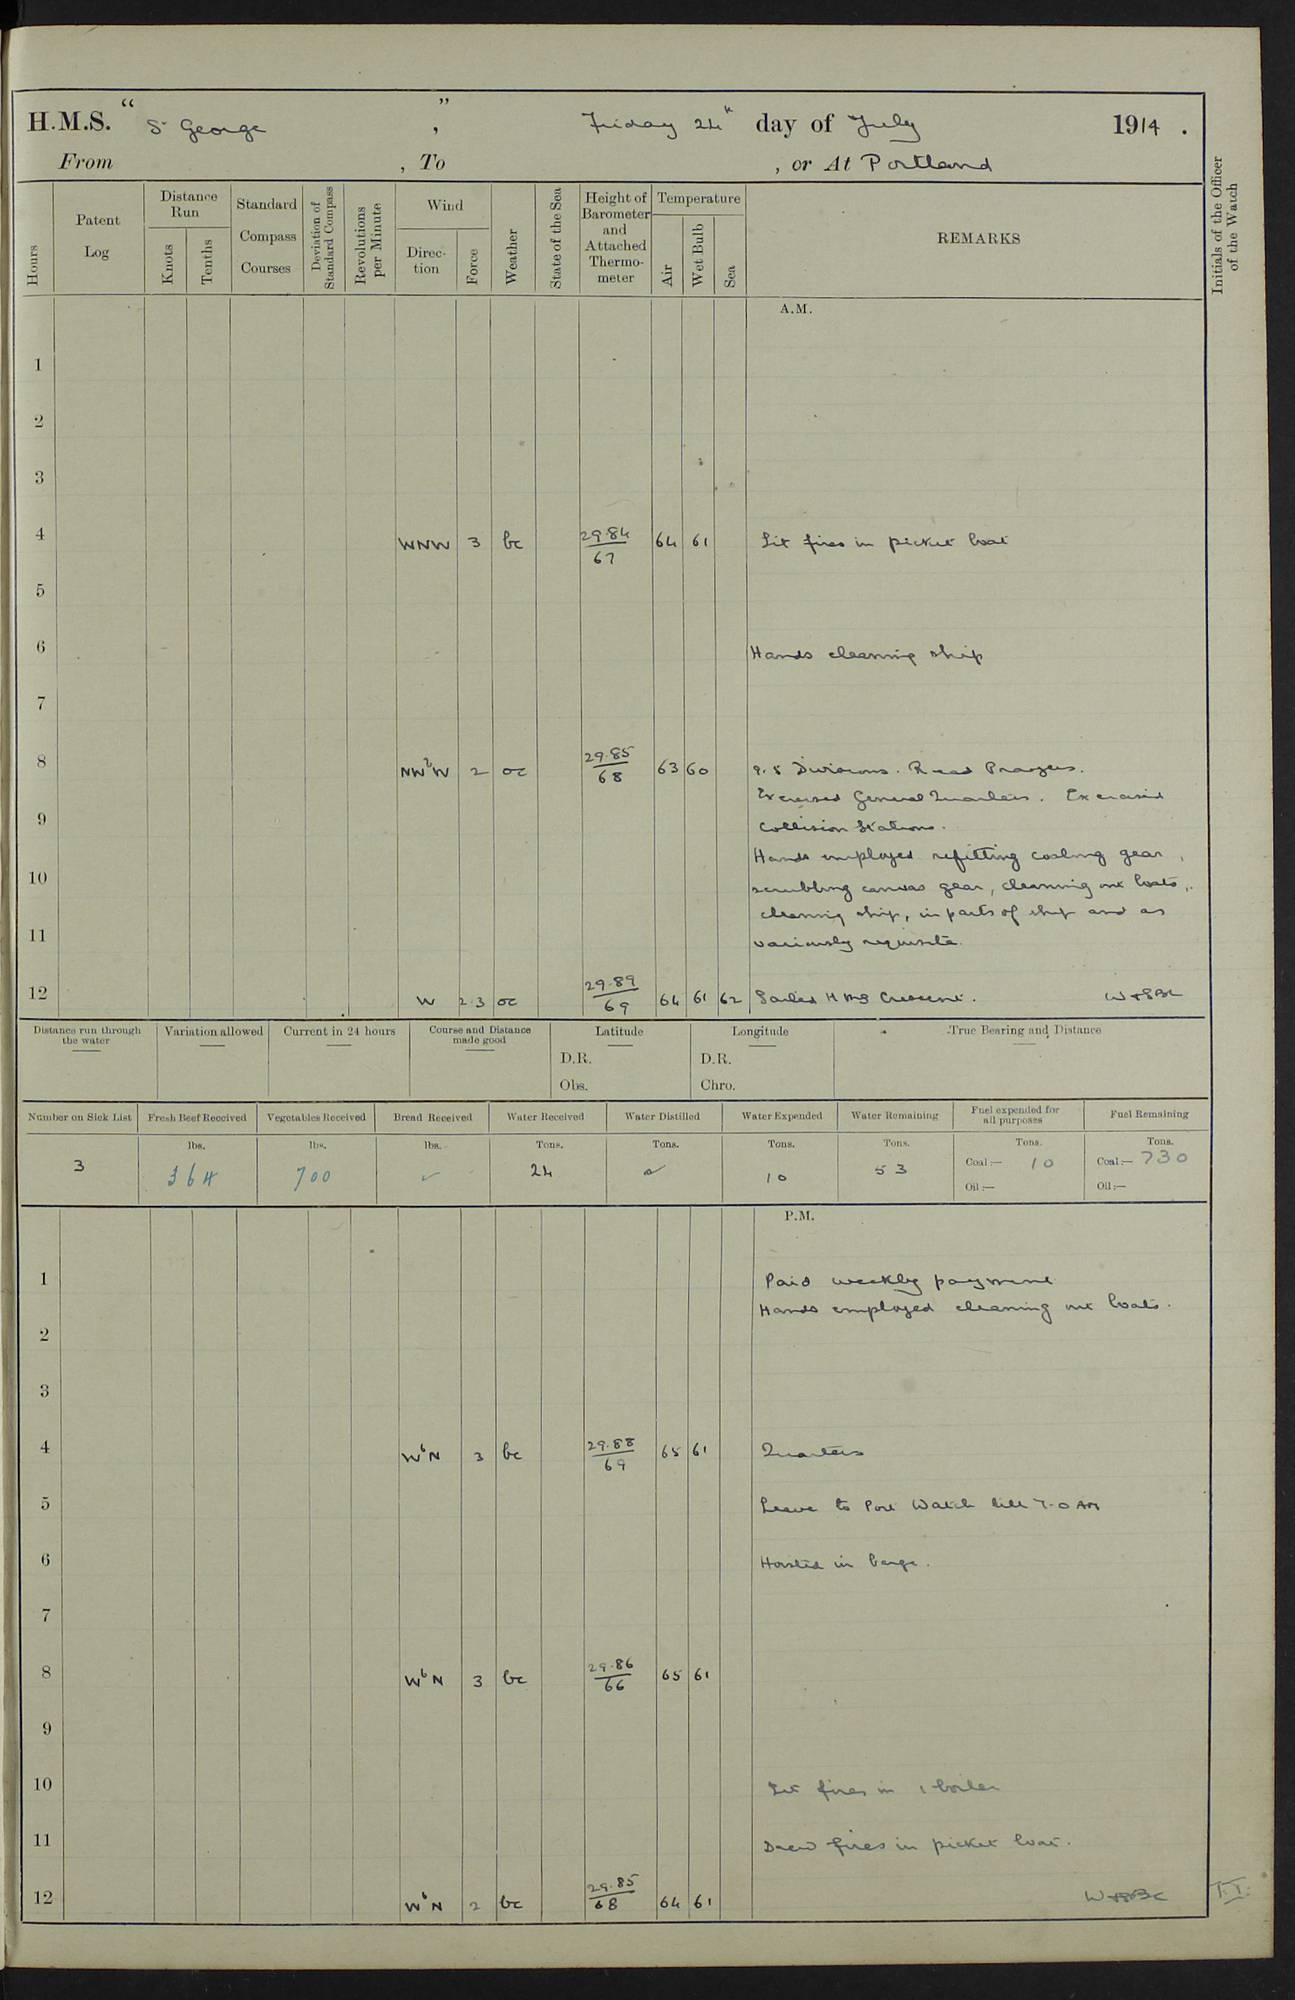 H.M.S. " St George " , Friday 24th day of July 1914 .
From , To , or At Portland
Hours
Patent Log
Distance Run
Knots
Tenths
Standard Compass Courses
Deviation of Standard Compass
Revolutions per Minute
Wind
Direc-tion
Force
Weather
State of the Sea
Height of Barometer and Attached Thermo-meter
Temperature
Air
Wet Bulb
Sea
REMARKS
Initials of the Officer of the Watch
A.M.
1
2
3
4 WNW 3 bc 29.84/67 64 61 Lit fires in picket boat
5
6 Hands cleaning ship
7
8 NWbW 2 oc 29.85/68 63 60 9.5 Divisions. Read Prayers.
Exercised General Quarters. Exercised
9 Collision Stations.
Hands employed refitting coaling gear,
10 scrubbing canvas gear, cleaning out boats,
cleaning ship, in parts of ship and as
11 variously requisite.
12 W 2.3 oc 29.89/69 64 61 62 Sailed HMS Crescent.
Distance run through the water
Variation allowed
Current in 24 hours
Course and Distance made good
Latitude
D.R.
Obs.
Longitude
D.R.
Chro.
True Bearing and Distance
Number on Sick List Fresh Beef Received Vegetables Received Bread Received Water Received Water Distilled Water Expended Water Remaining Fuel expended for all purposes Fuel Remaining
lbs. lbs. lbs. Tons. Tons. Tons. Tons. Tons. Tons.
3 364 700 ✓ 24 ✓ 10 53 Coal:— 10 Coal:— 730
Oil:— Oil:—
P.M.
1 Paid weekly payment
Hands employed cleaning out boats.
2
3
4 WbN 3 bc 29.88/69 65 61 Quarters
5 Leave to Port Watch till 7.0 AM
6 Hoisted in barge.
7
8 WbN 3 bc 29.86/66 65 61
9
10 Lit fires in 1 boiler
11 Drew fires in picket boat.
12 WbN 2 bc 29.85/68 64 61